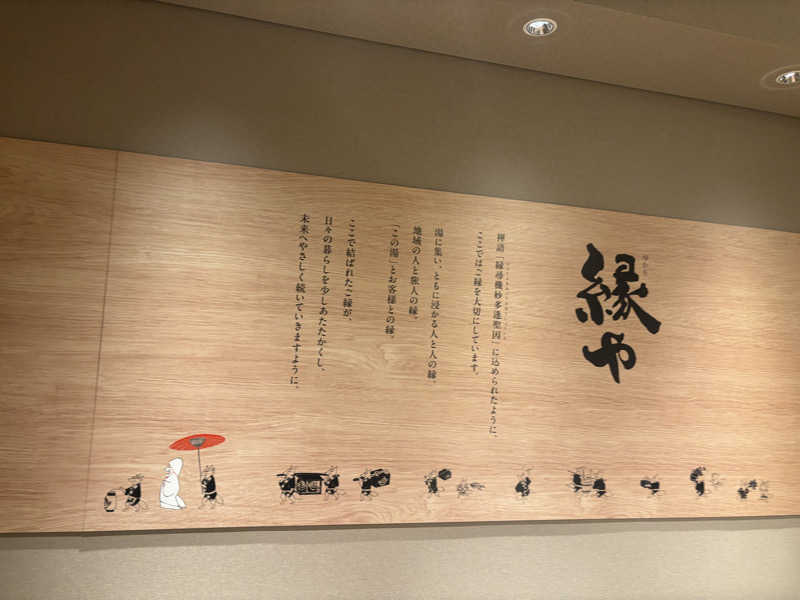 縁や
禅語「縁尋機妙多逢聖因」に込められたように、
ここではご縁を大切にしています。
湯に集い、ともに浸かる人と人の縁。
地域の人と旅人の縁。
「この湯」とお客様との縁。
ここで結ばれたご縁が、
日々の暮らしを少しあたたかくし、
未来へやさしく続いていきますように。